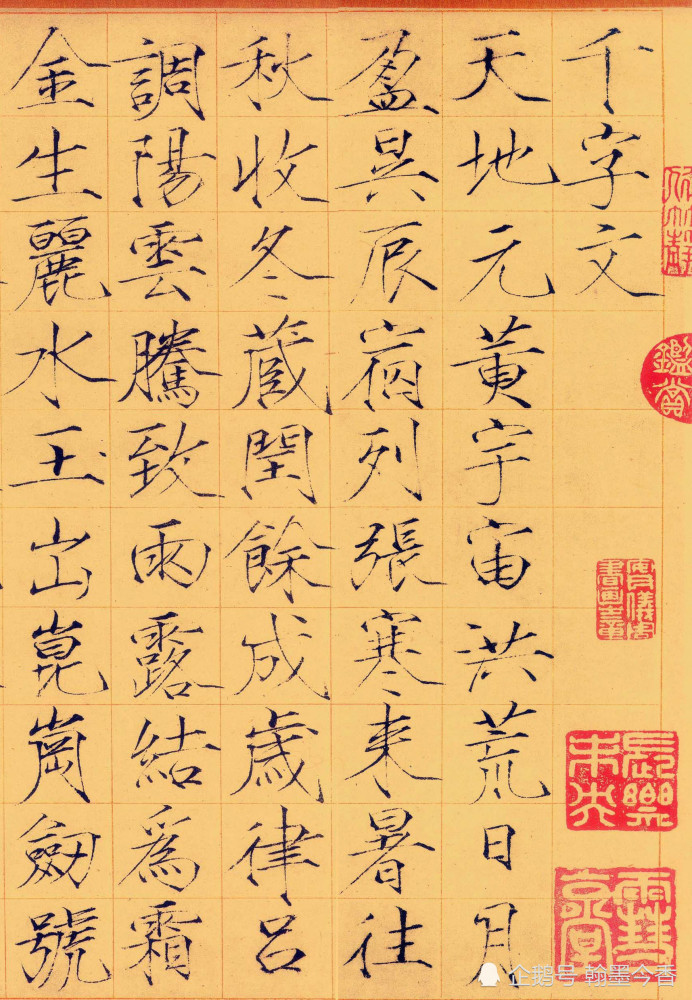 千字文
天地元黃宇宙洪荒日月
盈昃辰宿列張寒来暑往
秋收冬蔵閏餘成歲律呂
調陽雲騰致雨露結爲霜
金生麗水玉出崑崗劒號
鑑賞
長樂未央
企鹅号 翰墨今香